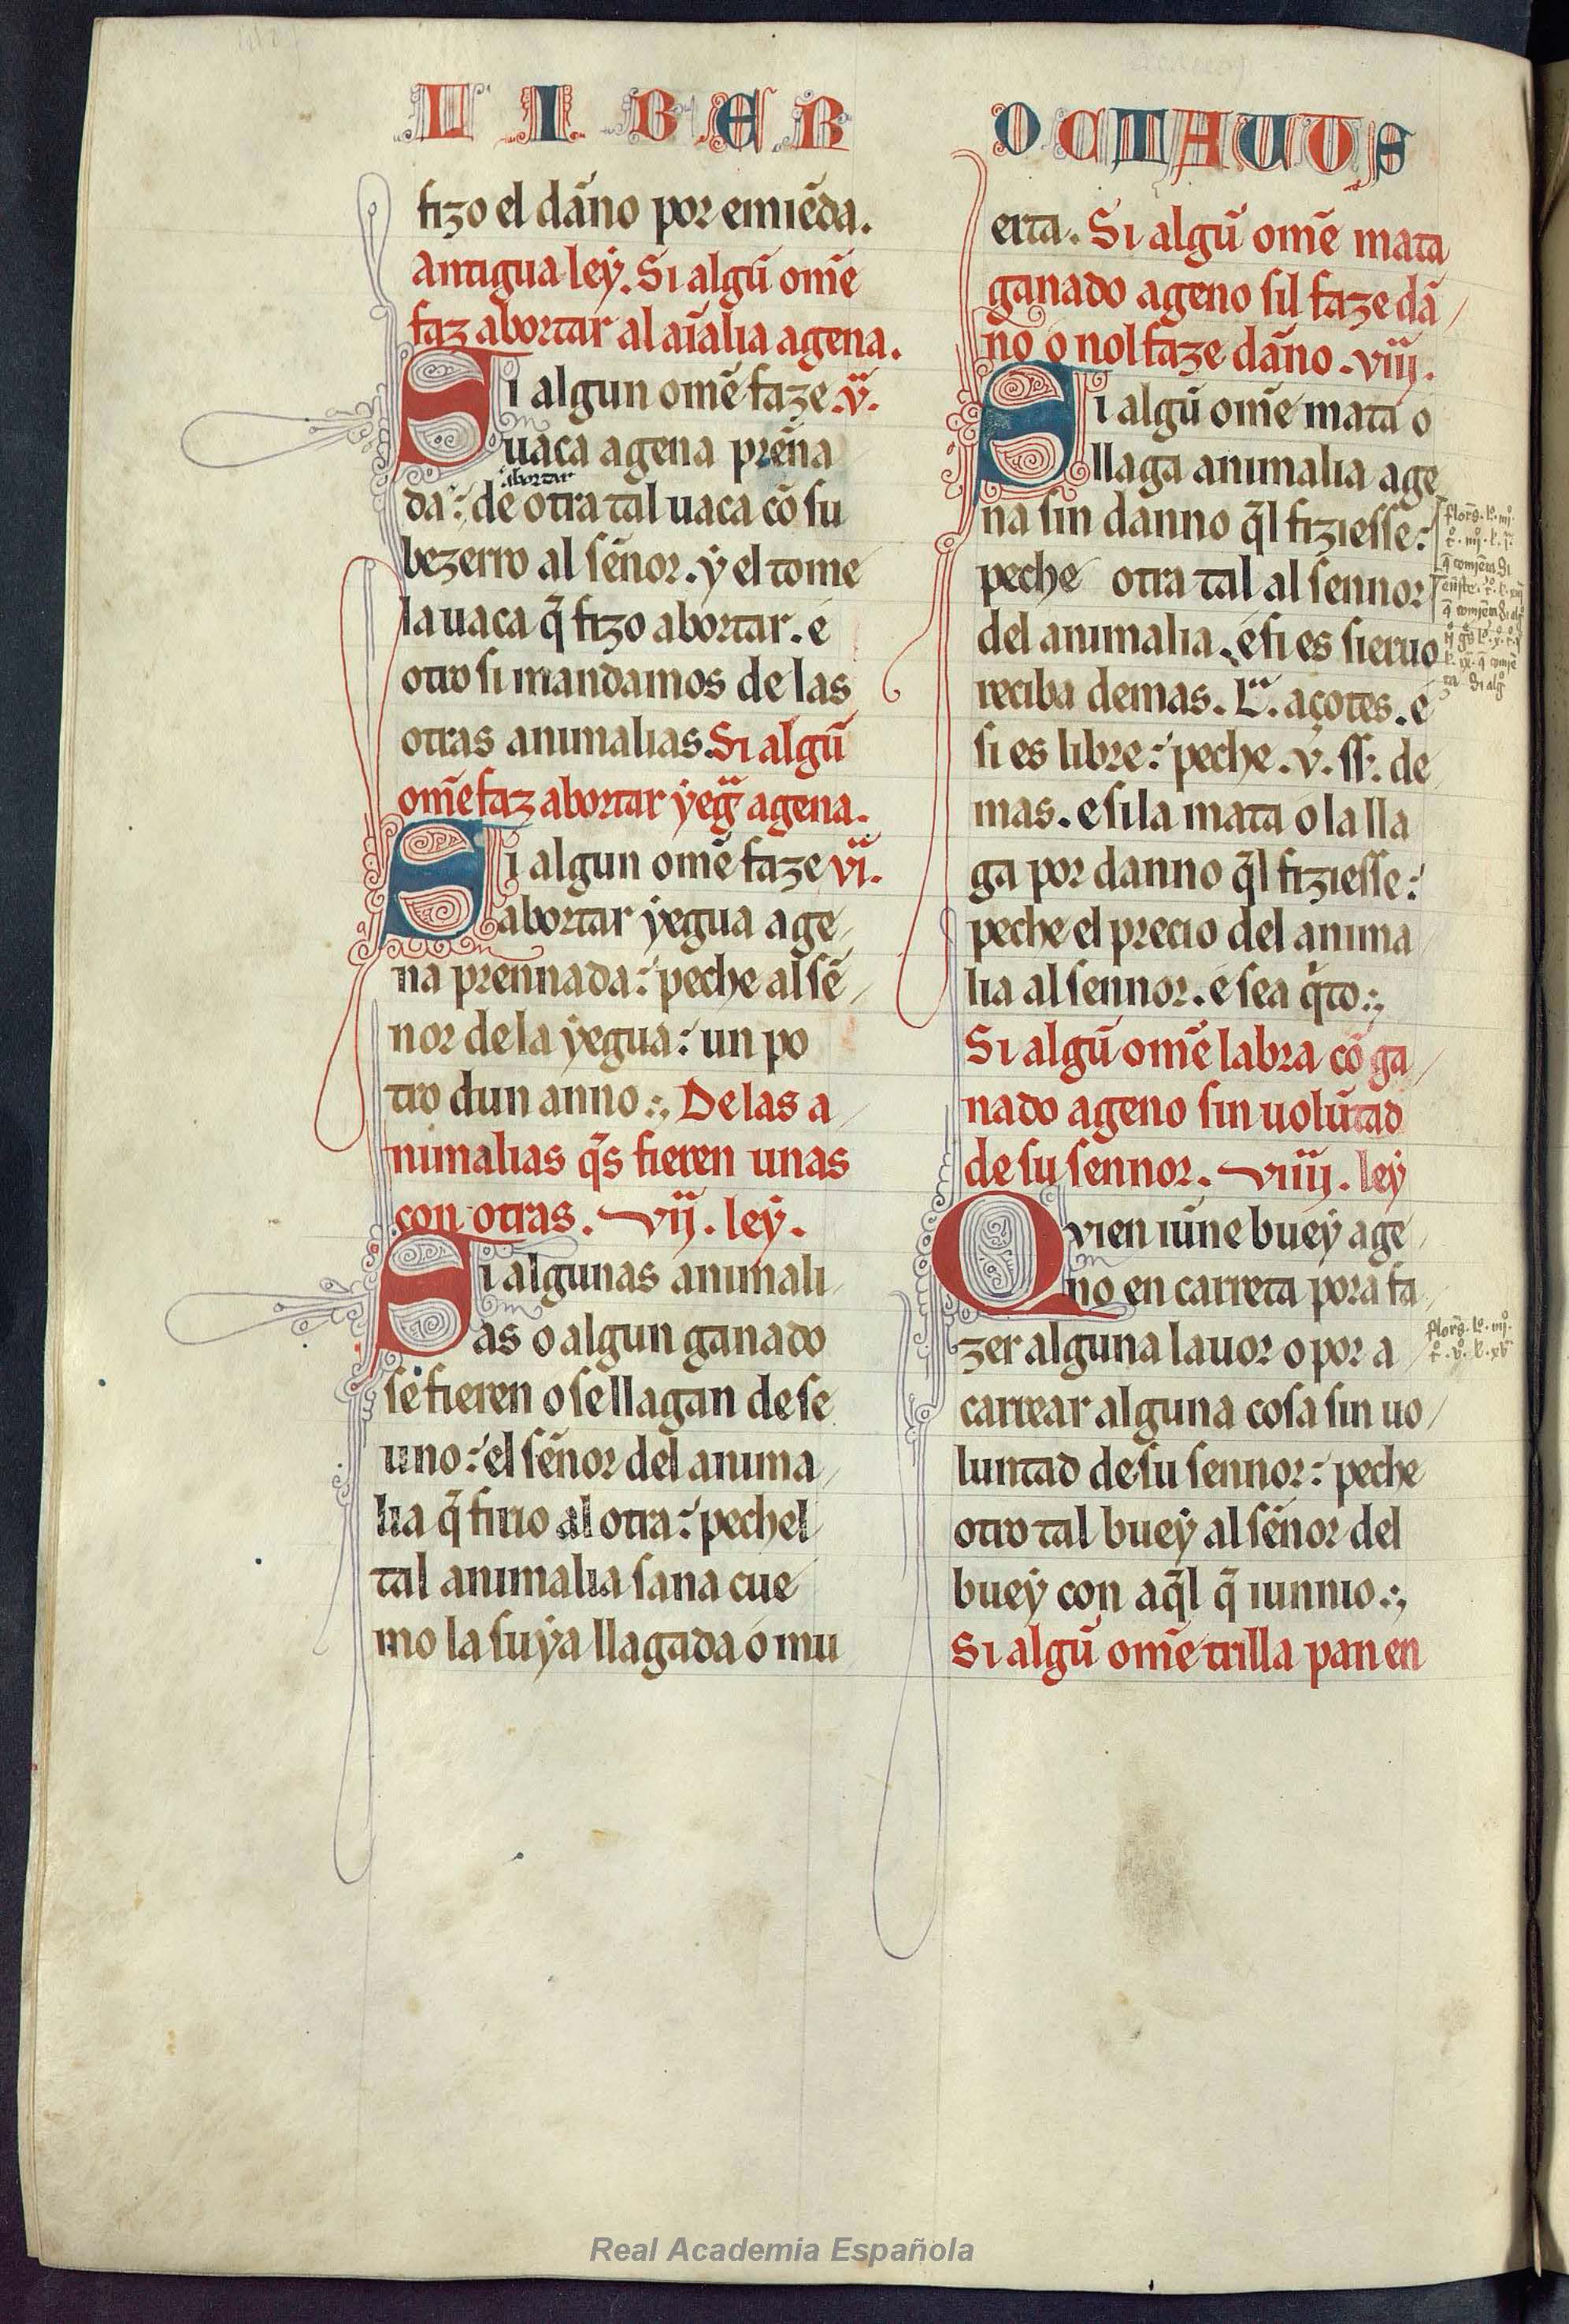 LIBER
fizo el dãno por emiẽda.
Antigua ley. Si algũ omẽ
faz abortar al aĩalia agena.
Si algun omẽ faze .v̈.
uaca agena prẽna
abortar
da: de otra tal uaca cõ su
bezerro al sẽnor. ẏ el tome
la uaca q̃ fizo abortar. e
otro si mandamos de las
otras animalias. Si algũ
omẽ faz abortar ẏegᷓ agena.
Si algun omẽ faze vi.
abortar ẏegua age
na prennada: peche al sẽ
nor de la ẏegua: un po
tro dun anno:, De las a
nimalias q̃s fieren unas
con otras. vij. leẏ.
Si algunas animali
as o algun ganado
se fieren o se llagan de se
uno: el sẽnor del anima
lia q̃ firio al otra: pechel
tal animalia sana cue
mo la suẏa llagada o mu
OCTAUUS
erta. Si algũ omẽ mata
ganado ageno sil faze dã
no o nol faze dãno .viij.
Si algũ omẽ mata o
llaga animalia age
na sin danno q̃l fiziesse:
peche otra tal al sennor
del animalia. e si es sieruo
reciba demas. L. açotes. e
si es libre: peche .v. ss. de
mas. e si la mata o la lla
ga por danno q̃l fiziesse:
peche el precio del anima
lia al sennor. e sea q̇to:,
Si algũ omẽ labra cõ ga
nado ageno sin uolũtad
de su sennor. viiij. leẏ
Qvien iũne bueẏ age
no en carreta pora fa
zer alguna lauor o por a
carrear alguna cosa sin uo
luntad de su sennor: peche
otro tal bueẏ al sẽnor del
bueẏ con aq̃l q̃ iunnio:,
Si algũ omẽ trilla pan en
Real Academia Española